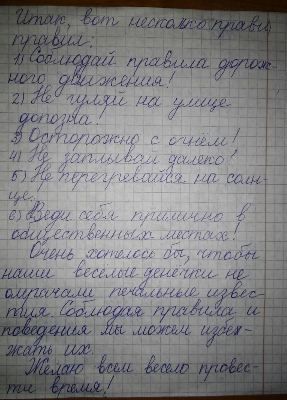 Итак, вот несколько правил
правил:
1) Соблюдай правила дорож-
ного движения!
2) Не гуляй на улице
допозна!
3) Осторожно с огнём!
4) Не заплывай далеко!
5) Не перегревайся на солн-
це.
6) Веди себя прилично в
общественных местах!
Очень хотелось бы, чтобы
наши весёлые денёчки не
омрачали печальные извес-
тия. Соблюдая правила и
поведения мы можем избе-
жать их.
Желаю всем весело провес-
ти время!